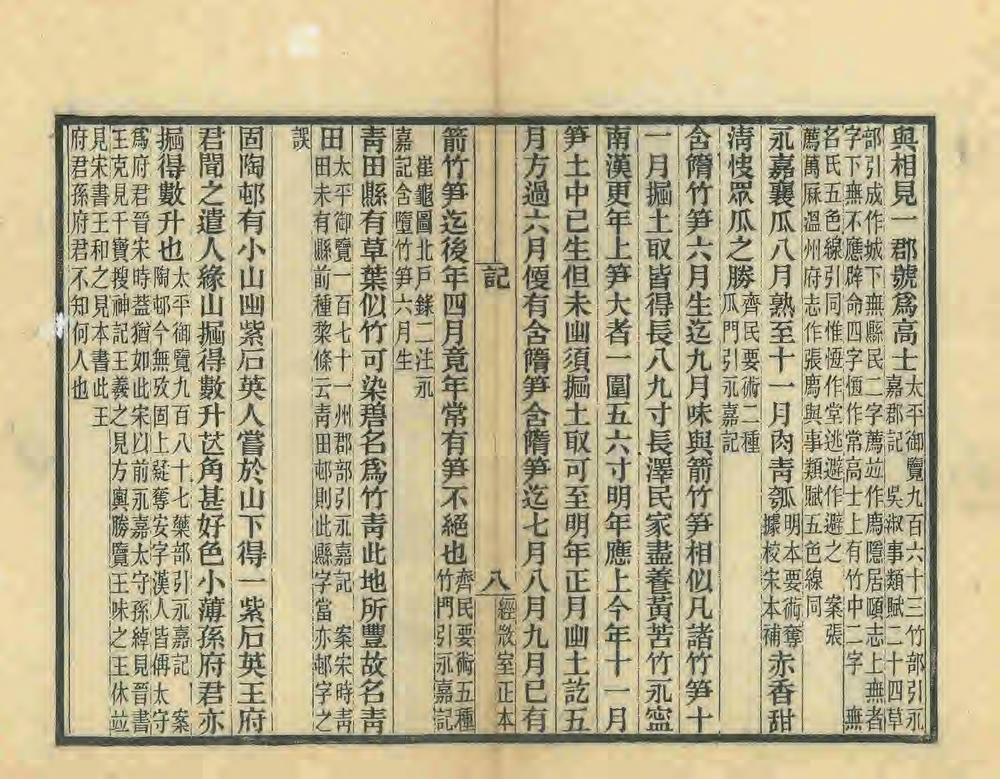 與相見一郡號爲高士太平御覽九百六十三竹部引永嘉郡記　吳淑事類賦二十四草
部引成作城下無縣民二字薦竝作廌隱居頤志上無者字下無不應辟命四字恆作常高士上有竹中二字　無
名氏五色線引同惟恆作堂逃避作避之　案張薦萬厤溫州府志作張廌與事類賦五色線同
永嘉襄瓜八月熟至十一月肉青瓠明本要術奪據校宋本補赤香甜
清快眾瓜之勝齊民要術二種瓜門引永嘉記
含䔺竹笋六月生迄九月味與箭竹笋相似凡諸竹笋十
一月掘土取皆得長八九寸長澤民家盡養黃苦竹永寍
南漢更年上笋大者一圍五六寸明年應上今年十一月
笋土中已生但未出須掘土取可至明年正月出土訖五
月方過六月便有含䔺笋含䔺笋迄七月八月九月已有
記　八　經㣲室正本
箭竹笋迄後年四月竟年常有笋不絕也齊民要術五種竹門引永嘉記
崔龜圖北戸錄二注永嘉記含墮竹笋六月生
青田縣有草葉似竹可染碧名爲竹青此地所豐故名青
田太平御覽一百七十一州郡部引永嘉記　案宋時青田未有縣前種棃條云青田邨則此縣字當亦邨字之
誤
固陶邨有小山出紫石英人嘗於山下得一紫石英王府
君聞之遣人緣山掘得數升芵角甚好色小薄孫府君亦
掘得數升也太平御覽九百八十七藥部引永嘉記　案陶邨今無攷固上疑奪安字漢人皆偁太守
爲府君晉宋時蓋猶如此宋以前永嘉太守孫綽見晉書王克見干寶搜神記王羲之見方輿勝覽王味之王休竝
見宋書王和之見本書此王府君孫府君不知何人也